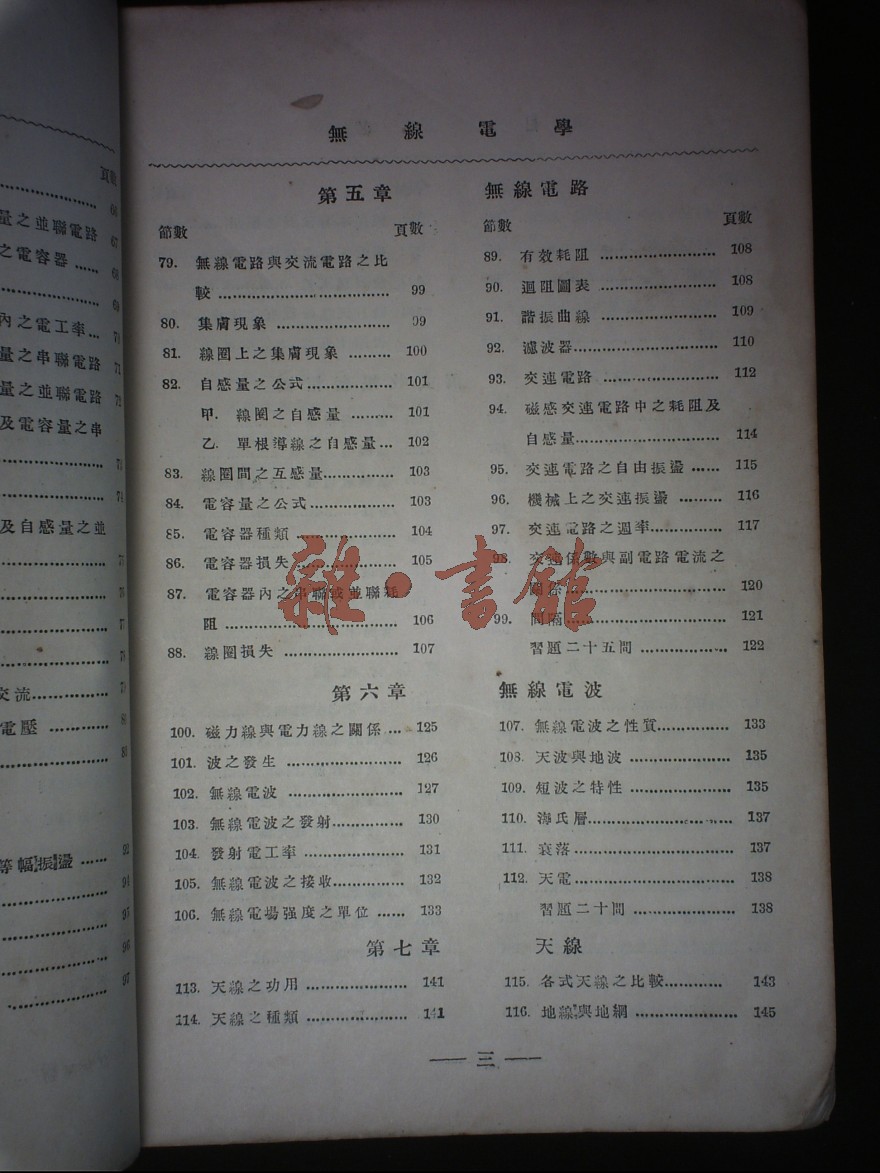 無線電學
第五章 無線電路
節數 頁數
79. 無線電路與交流電路之比
較 …… 99
80. 集膚現象 …… 99
81. 線圈上之集膚現象 …… 100
82. 自感量之公式 …… 101
甲. 線圈之自感量 …… 101
乙. 單根導線之自感量 … 102
83. 線圈間之互感量 …… 103
84. 電容量之公式 …… 103
85. 電容器種類 …… 104
86. 電容器損失 …… 105
87. 電容器內之串聯或並聯耗
阻 …… 106
88. 線圈損失 …… 107
節數 頁數
89. 有效耗阻 …… 108
90. 迴阻圖表 …… 108
91. 諧振曲線 …… 109
92. 濾波器 …… 110
93. 交連電路 …… 112
94. 磁感交連電路中之耗阻及
自感量 …… 114
95. 交連電路之自由振盪 …… 115
96. 機械上之交連振盪 …… 116
97. 交連電路之週率 …… 117
98. 交連係數與副電路電流之
關係 …… 120
99. 間隔 …… 121
習題二十五問 …… 122
第六章 無線電波
100. 磁力線與電力線之關係 … 125
101. 波之發生 …… 126
102. 無線電波 …… 127
103. 無線電波之發射 …… 130
104. 發射電工率 …… 131
105. 無線電波之接收 …… 132
106. 無線電場强度之單位 …… 133
107. 無線電波之性質 …… 133
108. 天波與地波 …… 135
109. 短波之特性 …… 135
110. 海氏層 …… 137
111. 衰落 …… 137
112. 天電 …… 138
習題二十問 …… 138
第七章 天線
113. 天線之功用 …… 141
114. 天線之種類 …… 141
115. 各式天線之比較 …… 143
116. 地線與地網 …… 145
— 三 —
頁數
量之並聯電路 67
之電容器 …… 68
內之電工率 … 70
量之串聯電路 71
量之並聯電路 72
及電容量之串
及自感量之並
交流 ……
電壓 ……
等幅振盪 …… 92
94
95
96
97
雜·書館